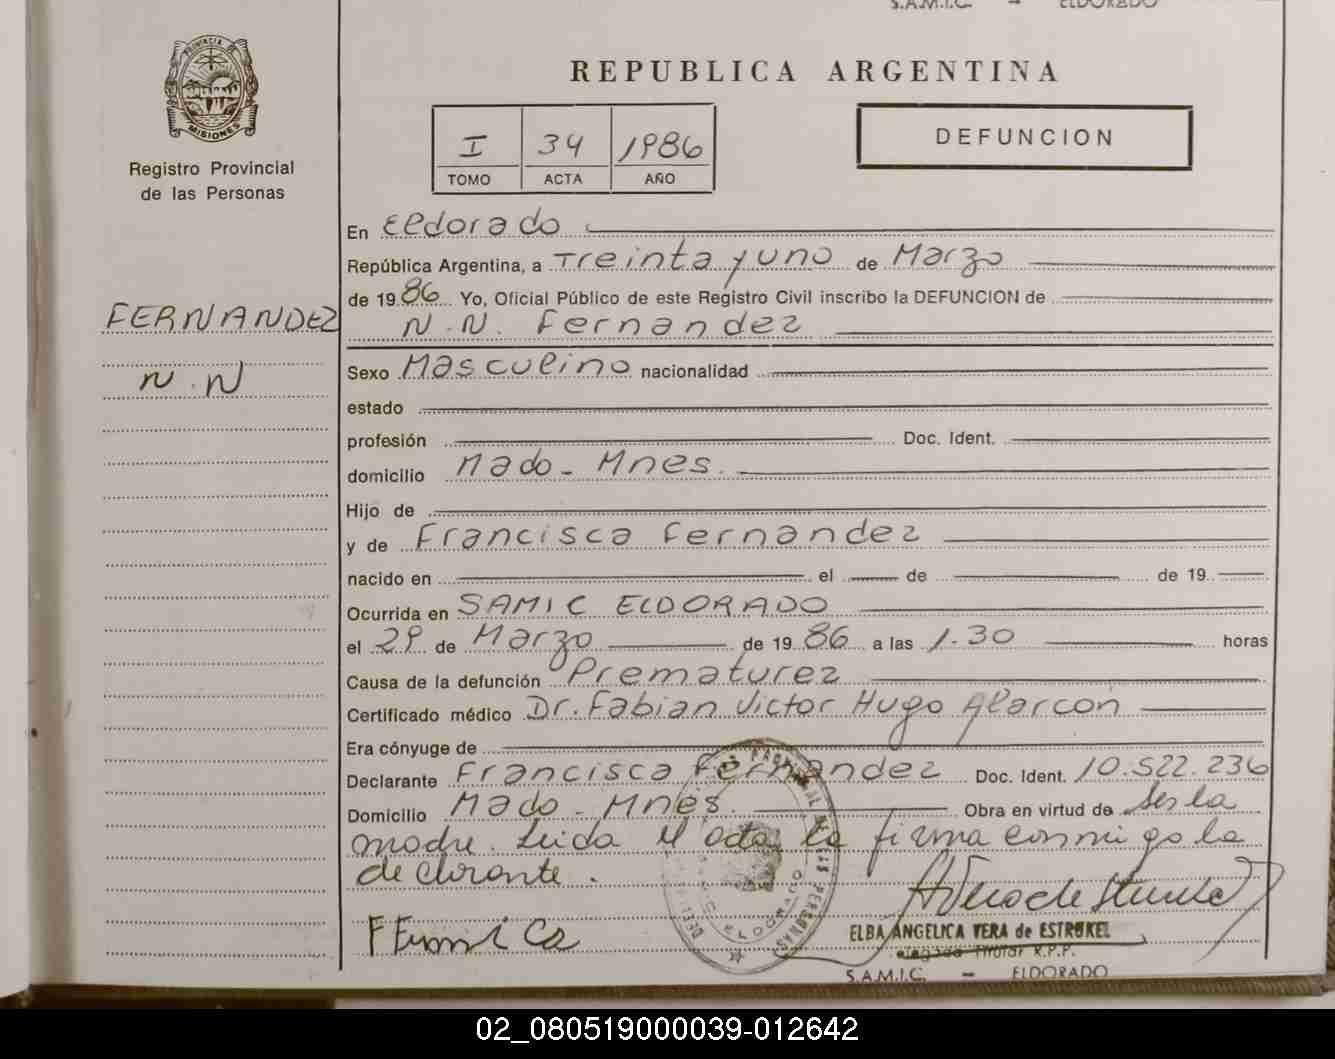 S.A.M.I.C. - ELDORADO
PROVINCIA DE
MISIONES
Registro Provincial
de las Personas
FERNANDEZ
N.N
REPUBLICA ARGENTINA
I 34 1986
TOMO ACTA AÑO
DEFUNCION
En Eldorado
República Argentina, a Treinta y uno de Marzo
de 1986 Yo, Oficial Público de este Registro Civil inscribo la DEFUNCION de
N.N. Fernandez
Sexo Masculino nacionalidad
estado
profesión Doc. Ident.
domicilio Mado - Mnes.
Hijo de
y de Francisca Fernandez
nacido en el de de 19
Ocurrida en SAMIC ELDORADO
el 29 de Marzo de 1986 a las 1.30 horas
Causa de la defunción Prematurez
Certificado médico Dr. Fabian Victor Hugo Alarcon
Era cónyuge de
Declarante Francisca Fernandez Doc. Ident. 10.522.236
Domicilio Mado - Mnes. Obra en virtud de Ser la
madre. Leida el acta la firma conmigo la
declarante.
ELBA ANGELICA VERA de ESTRUKEL
Titular R.P.P.
S.A.M.I.C. - ELDORADO
02_080519000039-012642